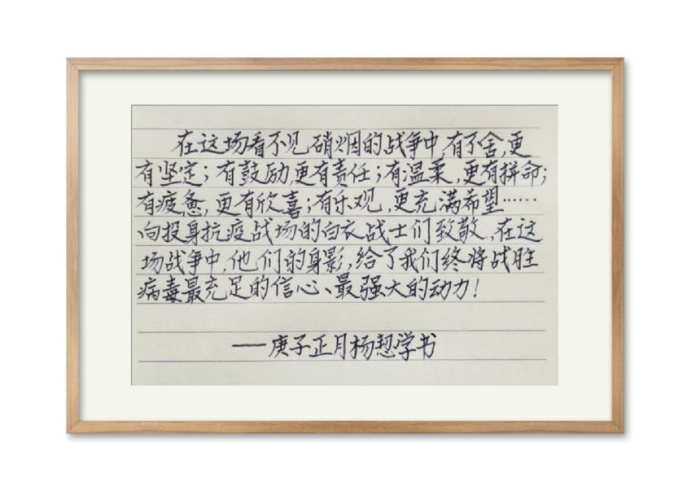 在这场看不见硝烟的战争中,有不舍,更
有坚定;有鼓励,更有责任;有温柔,更有拼命;
有疲惫,更有欣喜;有乐观,更充满希望……
向投身抗疫战场的白衣战士们致敬,在这
场战争中,他们的身影,给了我们终将战胜
病毒最充足的信心、最强大的动力!
——庚子正月杨恕学书